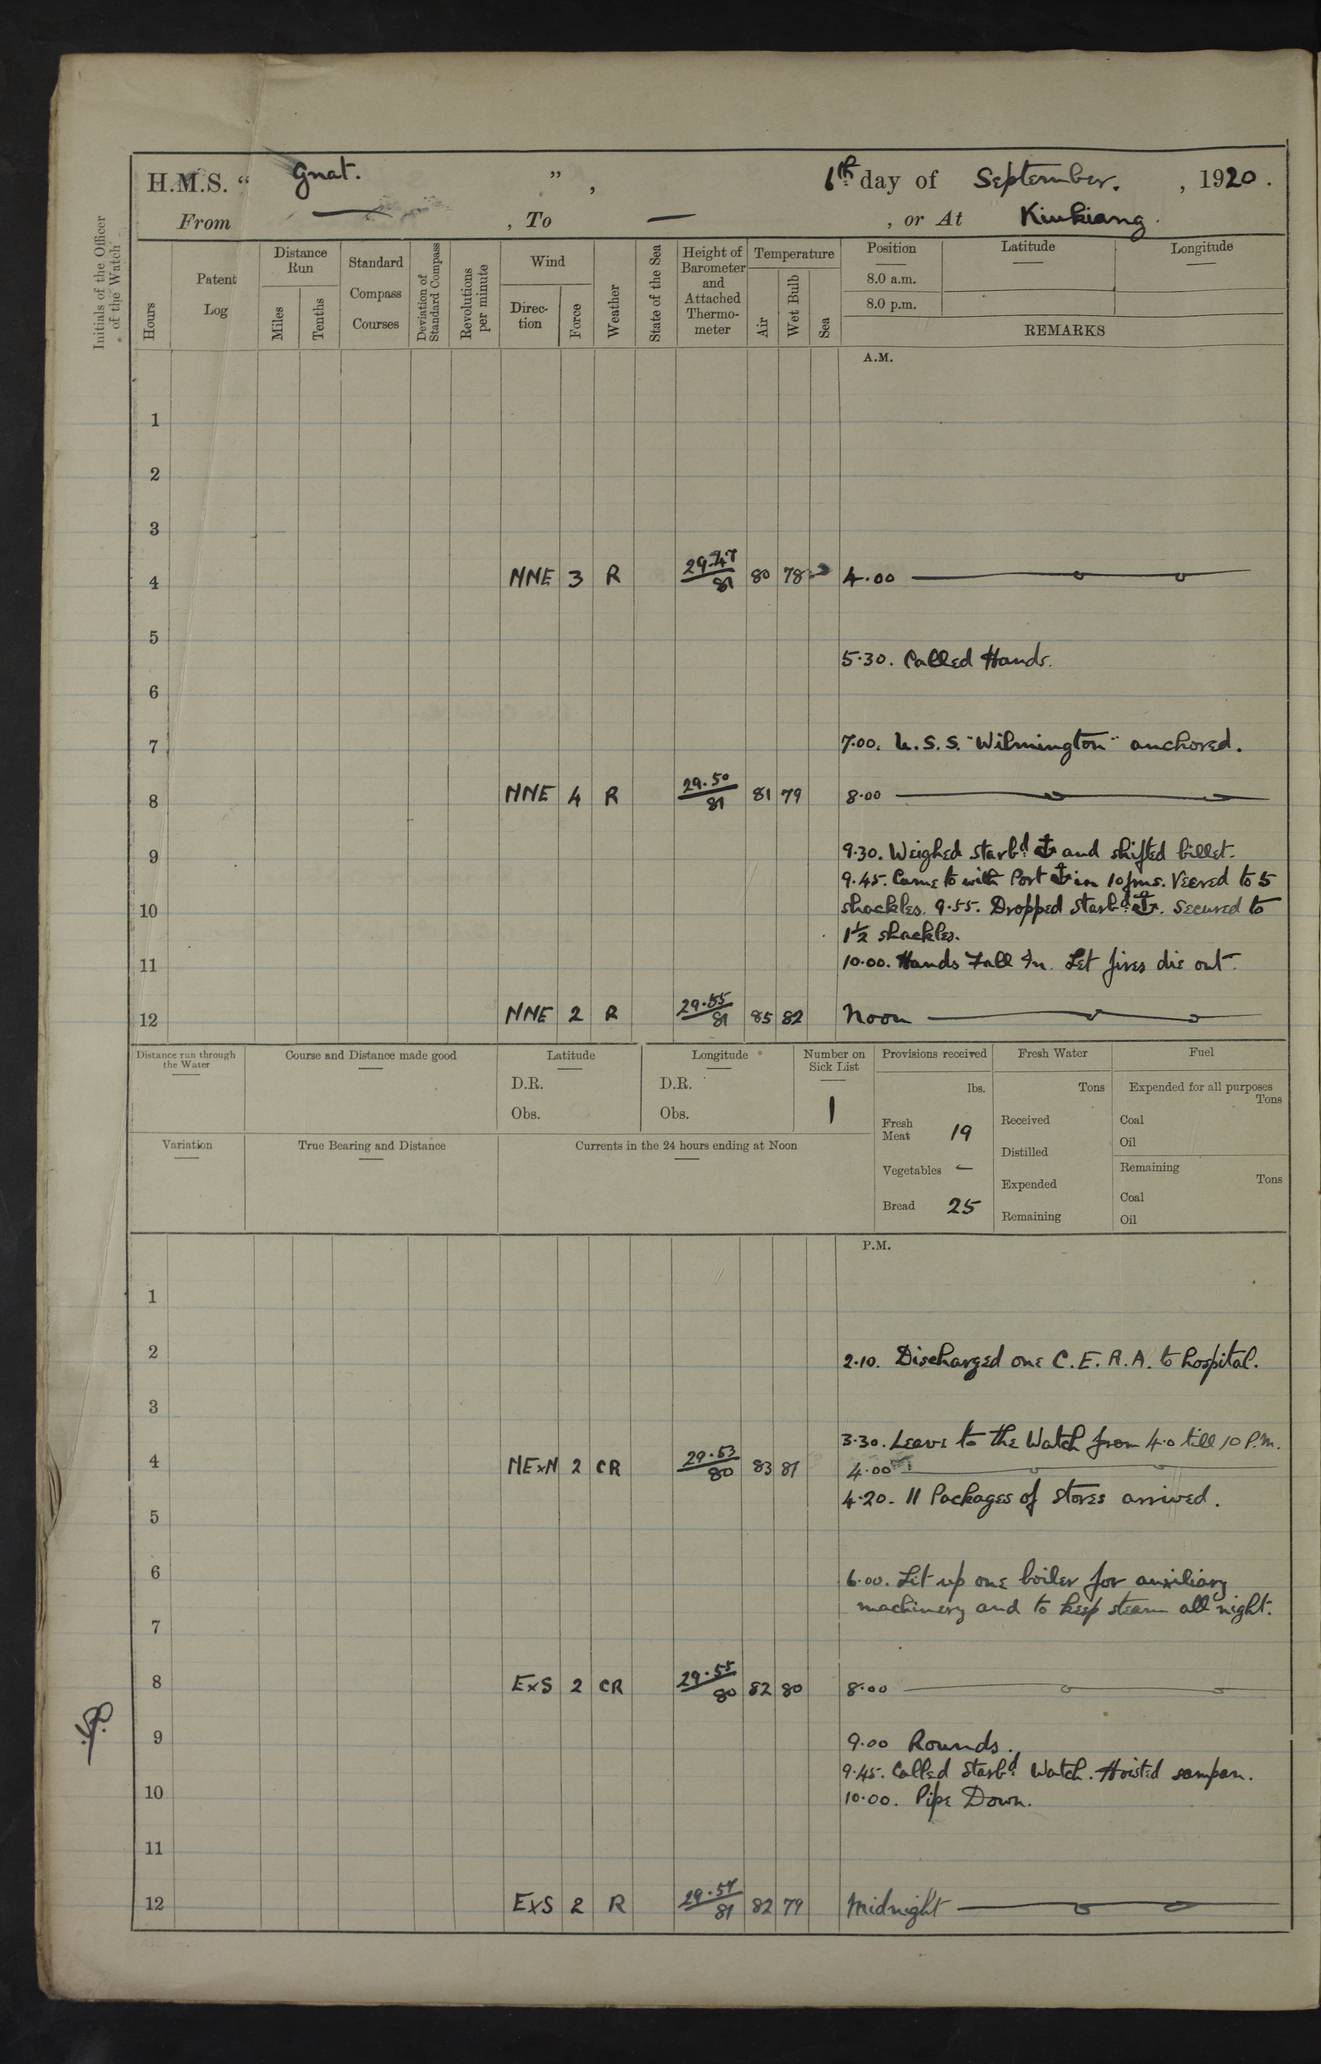 H.M.S. “ Gnat. ” , 6th day of September. , 1920 .
From — , To — , or At Kiukiang.
Initials of the Officer of the Watch
Hours
Patent Log
Distance Run
Miles
Tenths
Standard Compass Courses
Deviation of Standard Compass
Revolutions per minute
Wind
Direc-tion
Force
Weather
State of the Sea
Height of Barometer and Attached Thermo-meter
Temperature
Air
Wet Bulb
Sea
Position
8.0 a.m.
8.0 p.m.
Latitude
Longitude
REMARKS
A.M.
1
2
3
4 NNE 3 R 29.47/81 80 78 4.00
5
5.30. Called Hands.
6
7 7.00. U.S.S. "Wilmington" anchored.
8 NNE 4 R 29.50/81 81 79 8.00
9.30. Weighed Starbd. ⚓ and shifted billet.
9
9.45. Came to with Port ⚓ in 10 fms. Veered to 5
10 shackles. 9.55. Dropped Starbd. ⚓. Secured to
1½ shackles.
11 10.00. Hands Fall In. Let fires die out.
12 NNE 2 R 29.55/81 85 82 Noon
Distance run through the Water
Course and Distance made good
Latitude
D.R.
Obs.
Longitude
D.R.
Obs.
Number on Sick List
1
Provisions received
lbs.
Fresh Meat 19
Vegetables —
Bread 25
Fresh Water
Tons
Received
Distilled
Expended
Remaining
Fuel
Expended for all purposes
Tons
Coal
Oil
Remaining
Tons
Coal
Oil
Variation
True Bearing and Distance
Currents in the 24 hours ending at Noon
P.M.
1
2 2.10. Discharged one C.E.R.A. to hospital.
3
3.30. Leave to the Watch from 4.0 till 10 P.M.
4 NExN 2 CR 29.53/80 83 81 4.00
4.20. 11 Packages of stores arrived.
5
6 6.00. Lit up one boiler for auxiliary
machinery and to keep steam all night.
7
8 ExS 2 CR 29.55/80 82 80 8.00
9 9.00 Rounds.
9.45. Called Starbd. Watch. Hoisted sampan.
10 10.00. Pipe Down.
11
12 ExS 2 R 29.57/81 82 79 Midnight